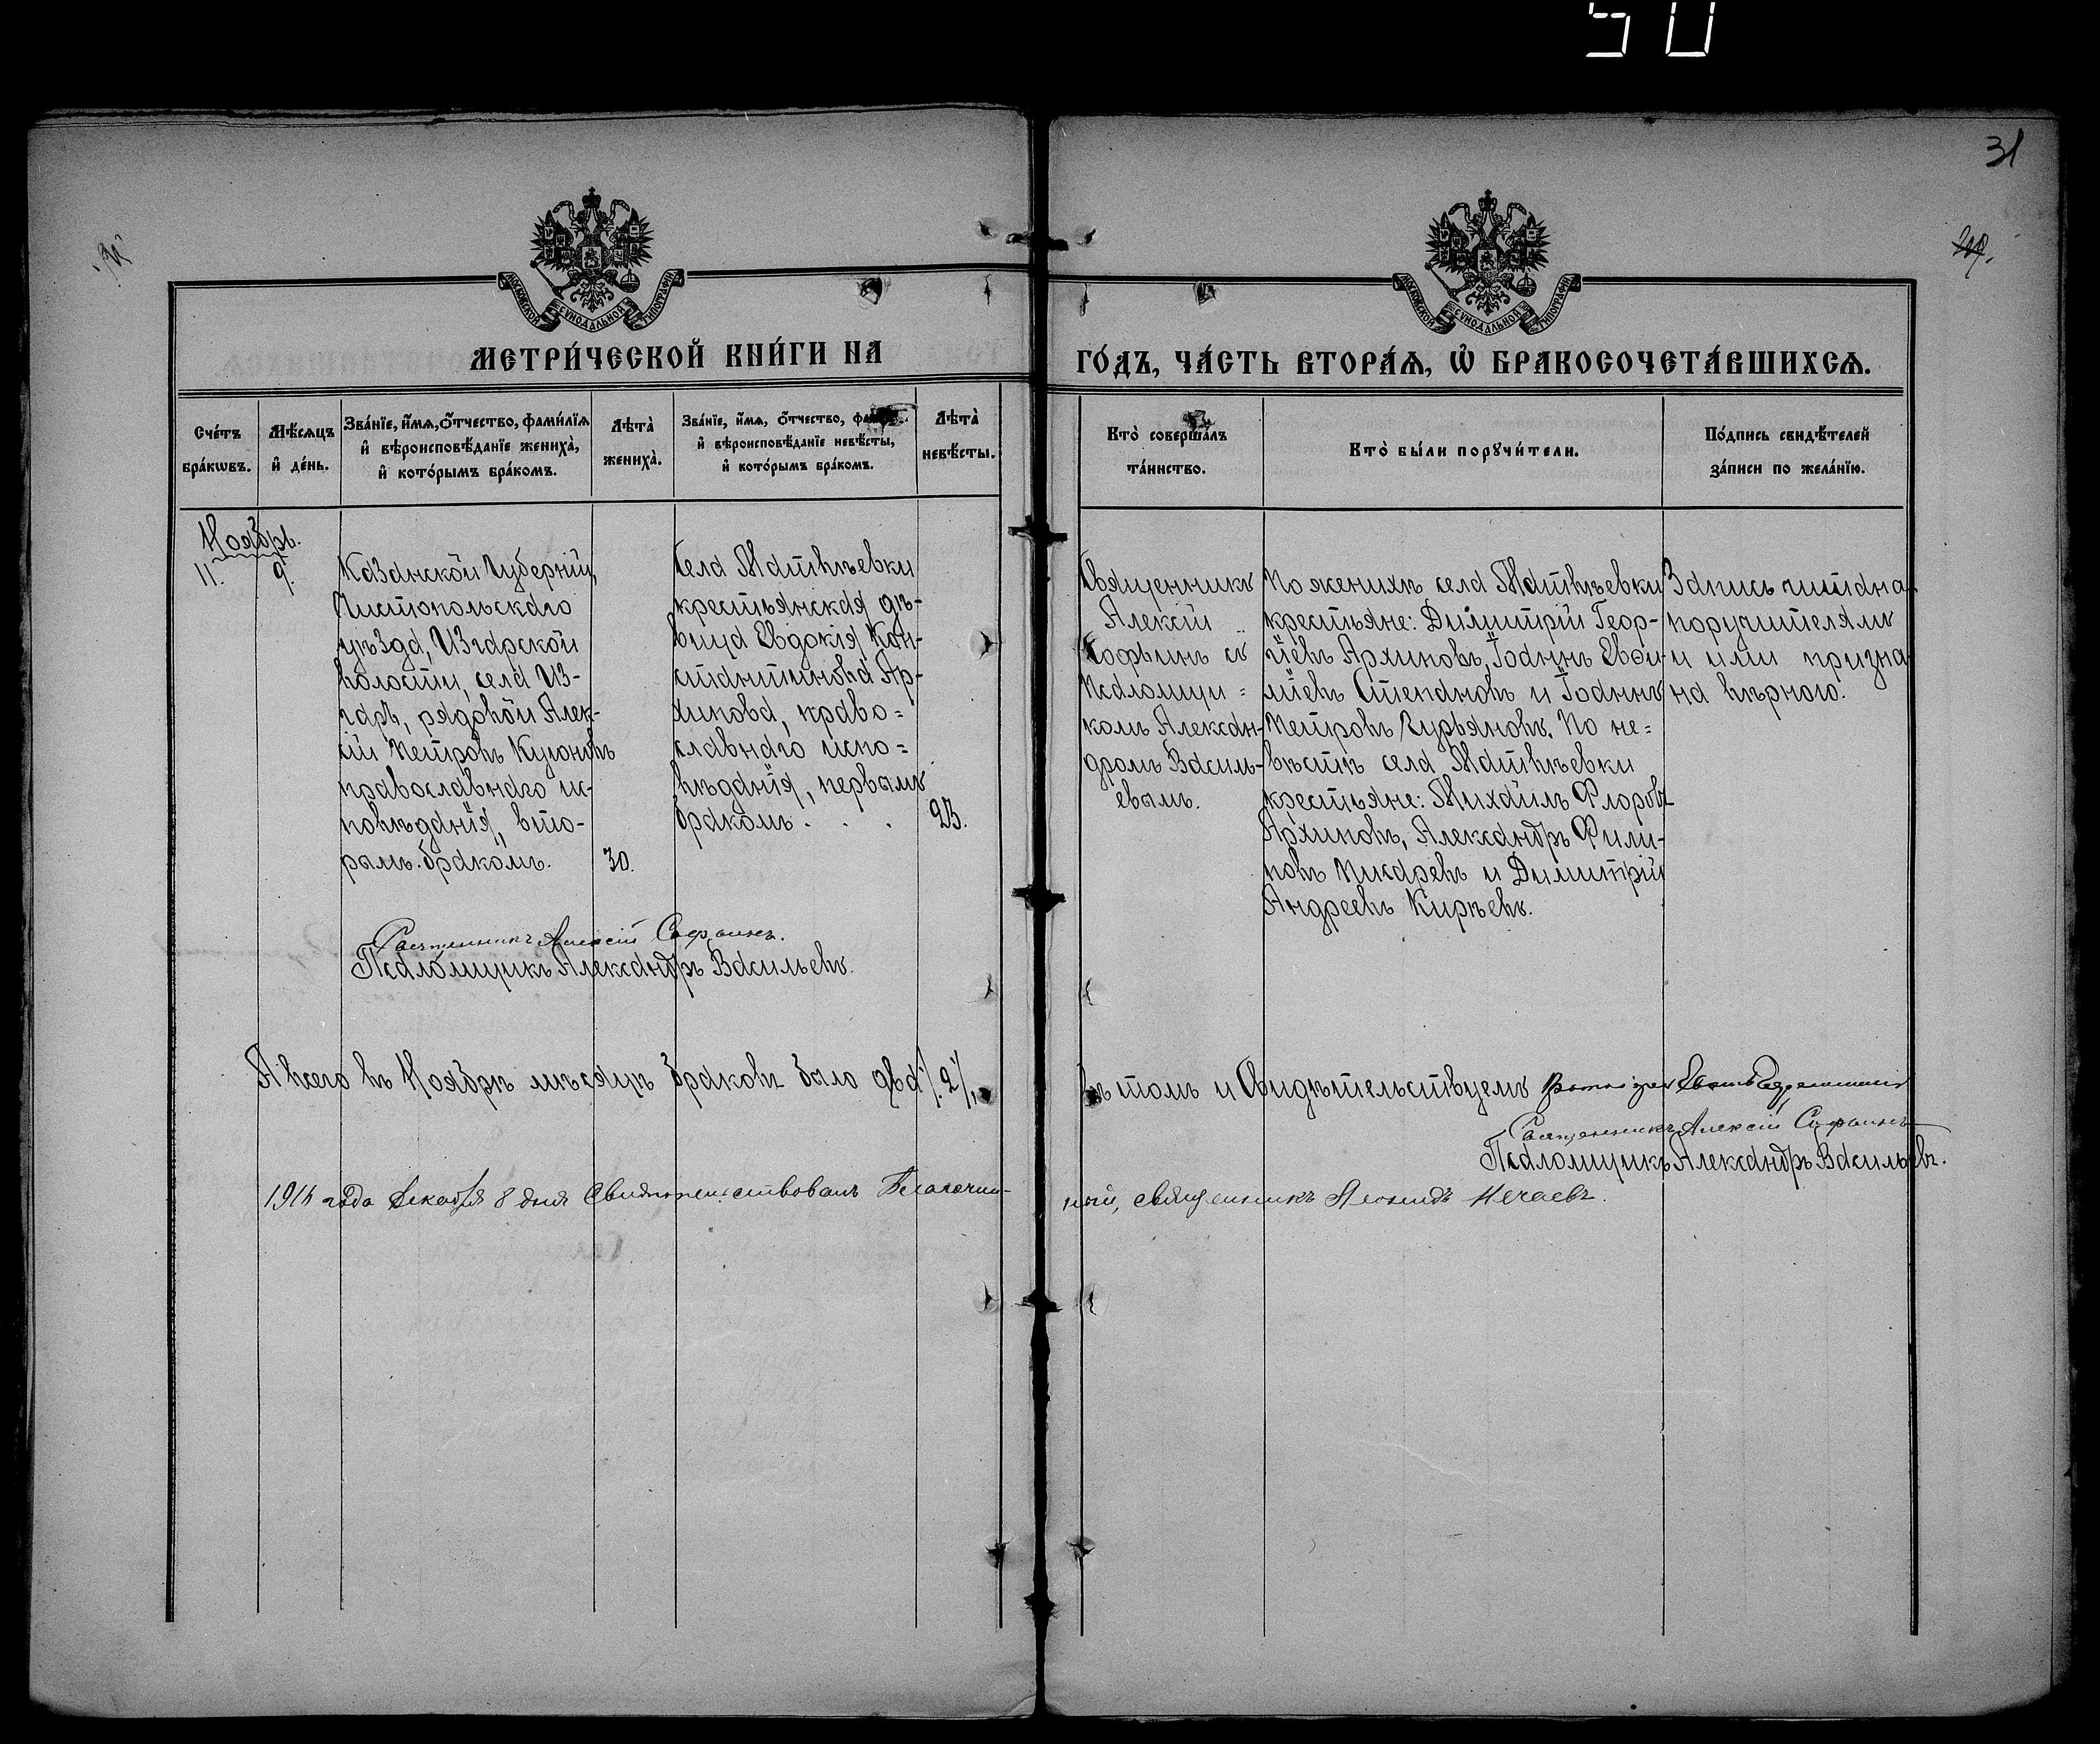 50
31
МОСКОВСКОЙ СѴНОДАЛЬНОЙ ТИПОГРАФІИ
МОСКОВСКОЙ СѴНОДАЛЬНОЙ ТИПОГРАФІИ
МЕТРИ́ЧЕСКОЙ КНИ́ГИ НА
ГО́ДЪ, ЧА́СТЬ ВТОРА́Ѧ, Ѿ БРАКОСОЧЕТА́ВШИХСѦ.
Сче́тъ
бра́кѡвъ.
Мѣ́сѧцъ
и҆ де́нь.
Зва́нїе, и҆́мѧ, ѻ҆́тчество, фами́лїѧ
и҆ вѣроисповѣ́данїе жениха̀,
и҆ кото́рымъ бра́комъ.
Лѣта̀
жениха̀.
Зва́нїе, и҆́мѧ, ѻ҆́тчество,
и҆ вѣроисповѣ́данїе невѣ́сты,
и҆ кото́рымъ бра́комъ.
Лѣта̀
невѣ́сты.
Кто̀ соверша́лъ
та́инство.
Кто̀ бы́ли порꙋчи́тели.
По́дпись свидѣ́телей
за́писи по жела́нїю.
Ноябрь.
11.
9.
Казанской Губерніи,
Чистопольскаго
уѣзда, Изгарской
волости, села Из-
гаръ, рядовой Алек-
сій Петровъ
православнаго ис-
повѣданія, вто-
рымъ бракомъ.
30.
Села Матвѣевки
крестьянская дѣ-
вица Евдокія Кон-
стантинова Ар-
хипова, право=
славнаго испо=
вѣданія, первымъ
бракомъ . . .
23.
Священникъ
Алексій
Софьинъ съ
псаломщи=
комъ Алексан-
дромъ Василь-
евымъ.
По женихѣ села Матвѣевки
крестьяне: Димитрій Геор-
гіевъ Архиповъ, Іоаннъ Евѳи-
міевъ Степановъ и Іоаннъ
Петровъ Гурьяновъ. По не=
вѣстѣ села Матвѣевки
крестьяне: Михаилъ Флоровъ
Архиповъ, Александръ Филип-
повъ и Димитрій
Андреевъ Кирѣевъ.
Запись читана
поручителямъ
и ими призна-
на вѣрною.
Священникъ Алексій Софьинъ.
Псаломщикъ Александръ Васильевъ.
А всего въ Ноябрѣ мѣсяцѣ браковъ было два /.2./,
въ томъ и Свидѣтельствуемъ
Священникъ Алексій Софьинъ
Псаломщикъ Александръ Васильевъ.
1914 года Декабря 8 дня Свидѣтельствовалъ Благочин-
ный, священникъ Леонидъ Нечаевъ.